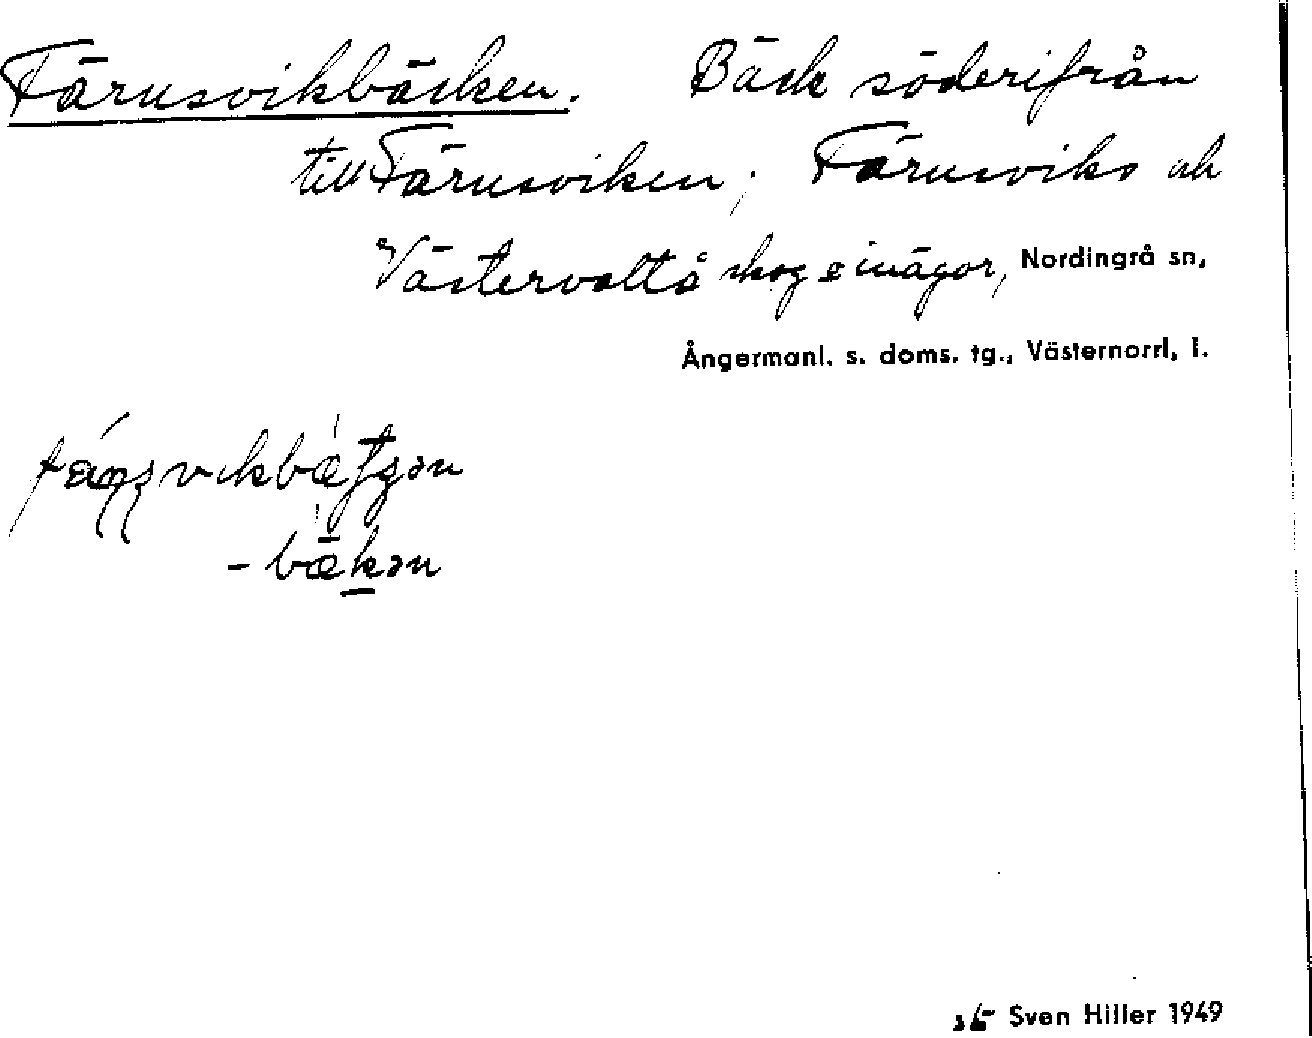 Färnsvikbäcken. Bäck söderifrån
till Färnsviken; Färnsviks oh
Västervattå skog o inägor, Nordingrå sn,
Ångermanl. s. doms. tg., Västernorrl. l.
-bäkən
Sven Hiller 1949